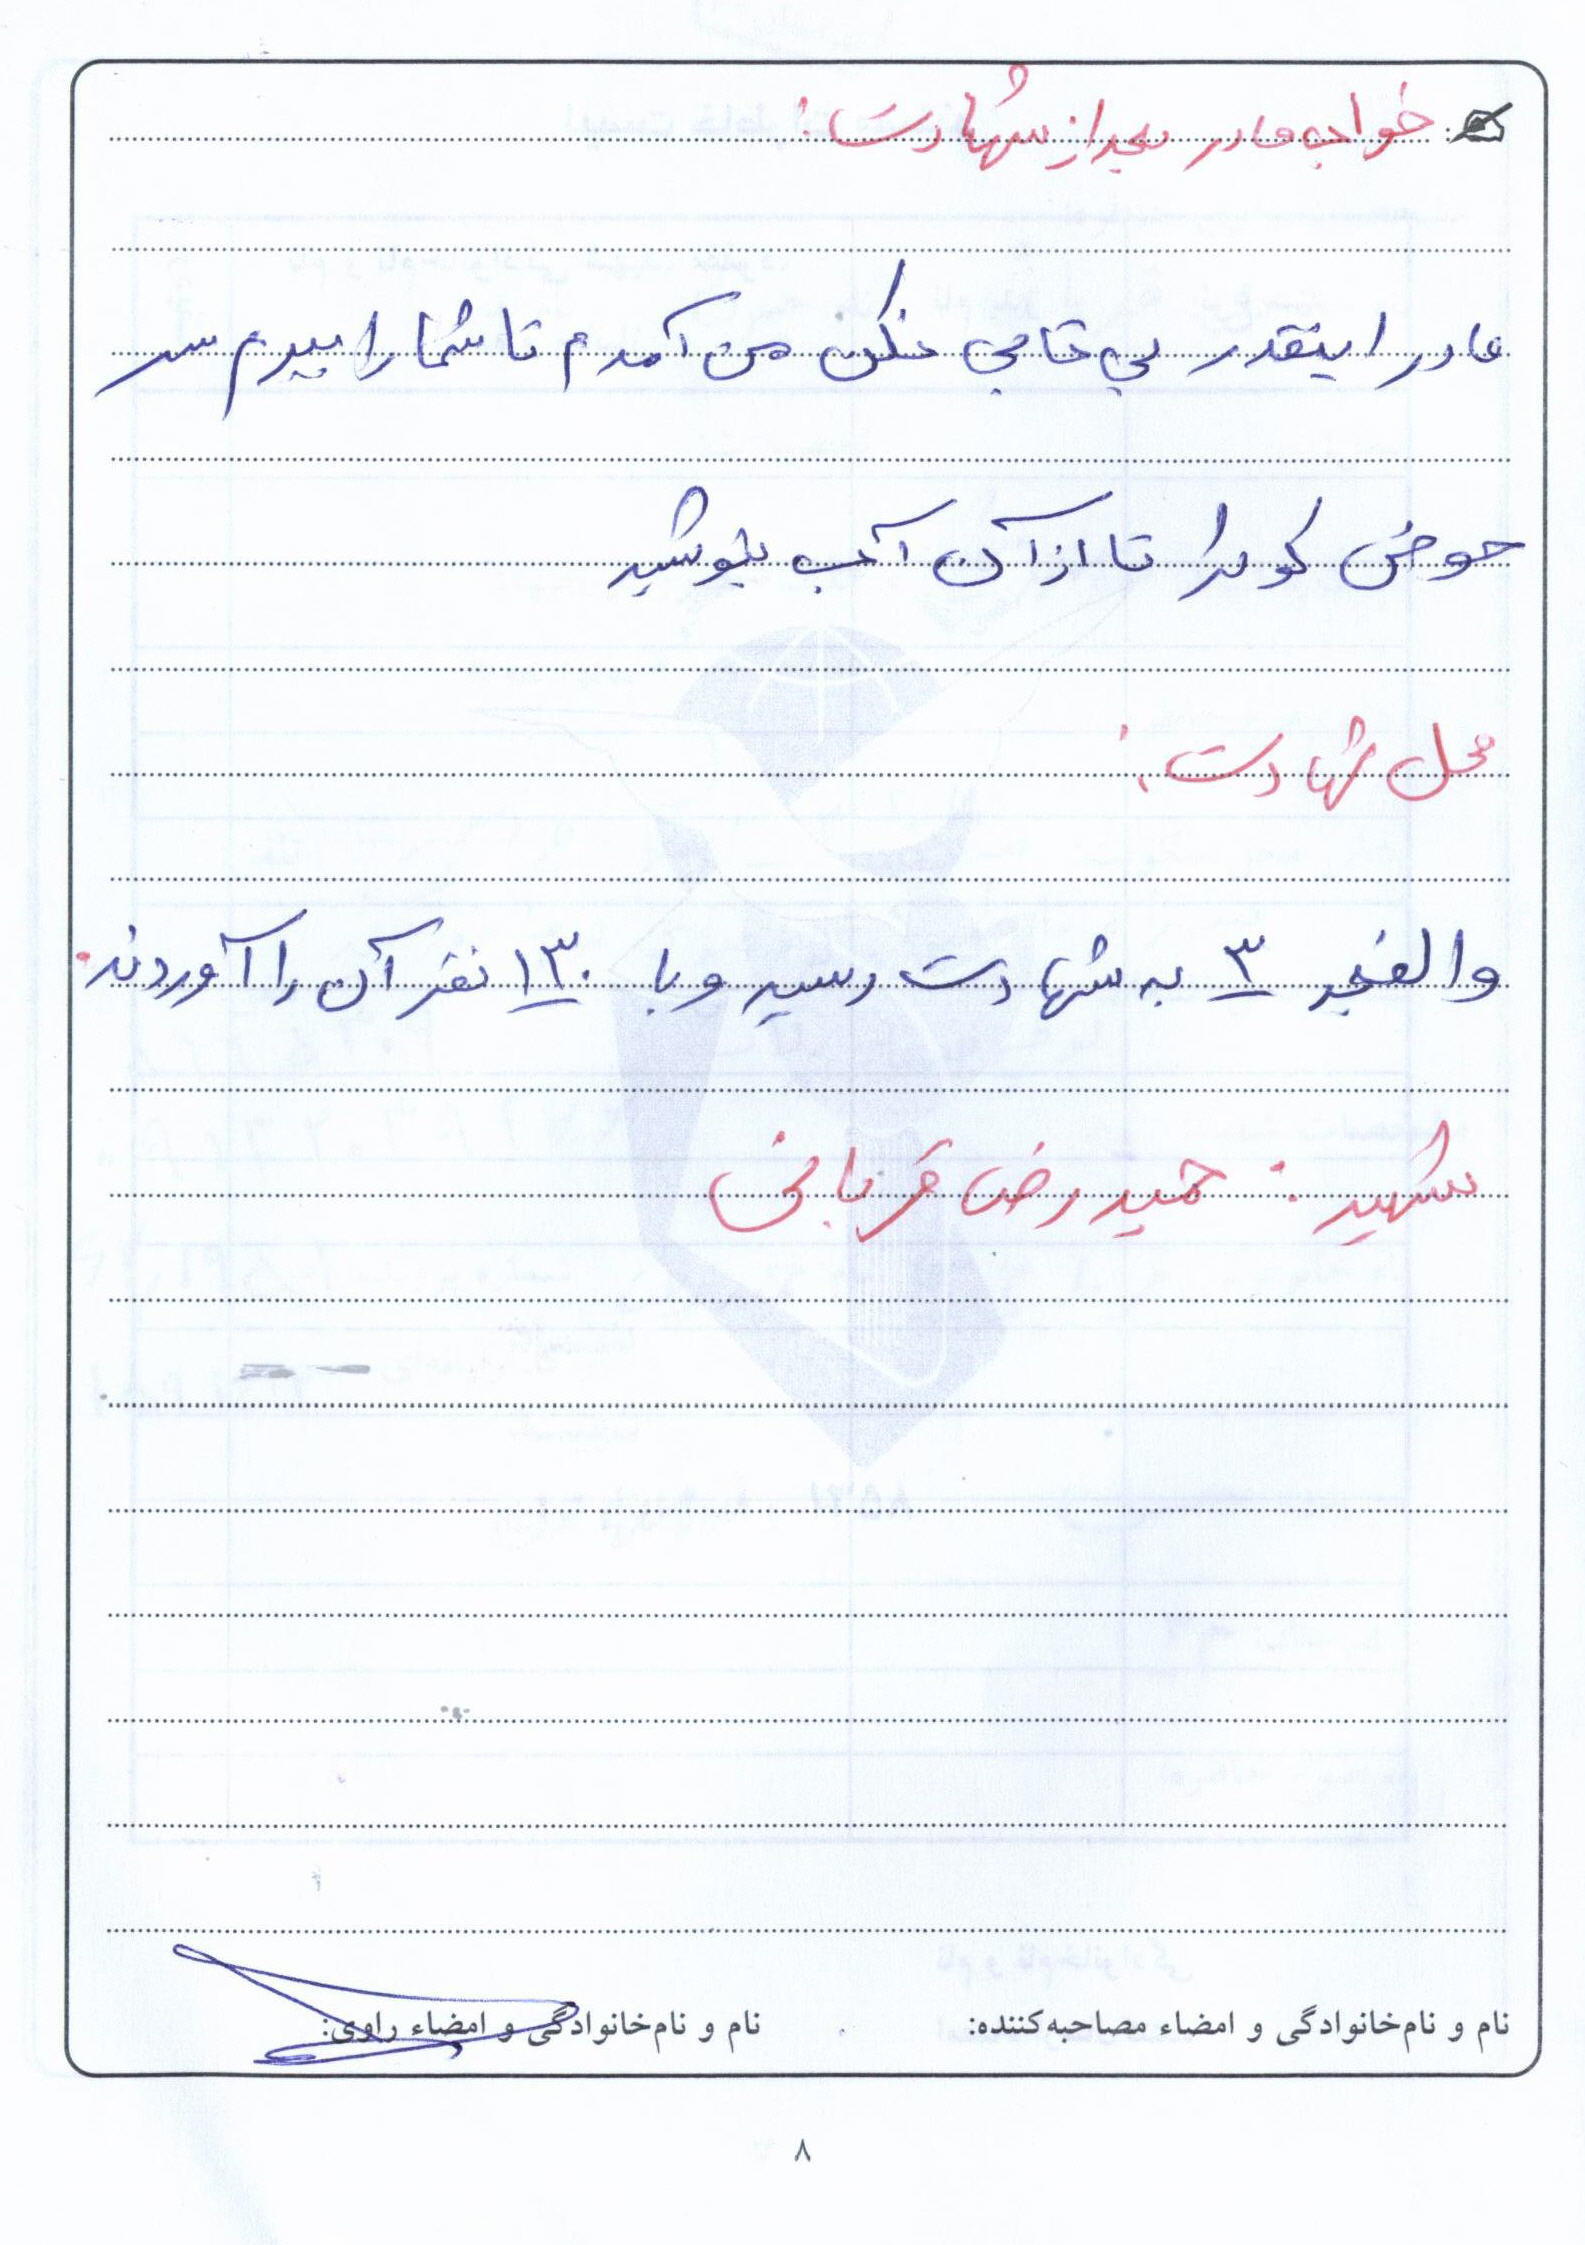 خواب مادر بعد از شهادت:
مادر اینقدر بی تابی نکن من آمدم تا شما را ببرم سر
حوض کوثر تا از آن آب بنوشید
محل شهادت:
والفجر ۳ به شهادت رسید و با ۱۳۰ نفر آن را آوردند.
شهید: حمید رضا قربانی
نام و نام‌خانوادگی و امضاء مصاحبه‌کننده: نام و نام‌خانوادگی و امضاء راوی:
۸